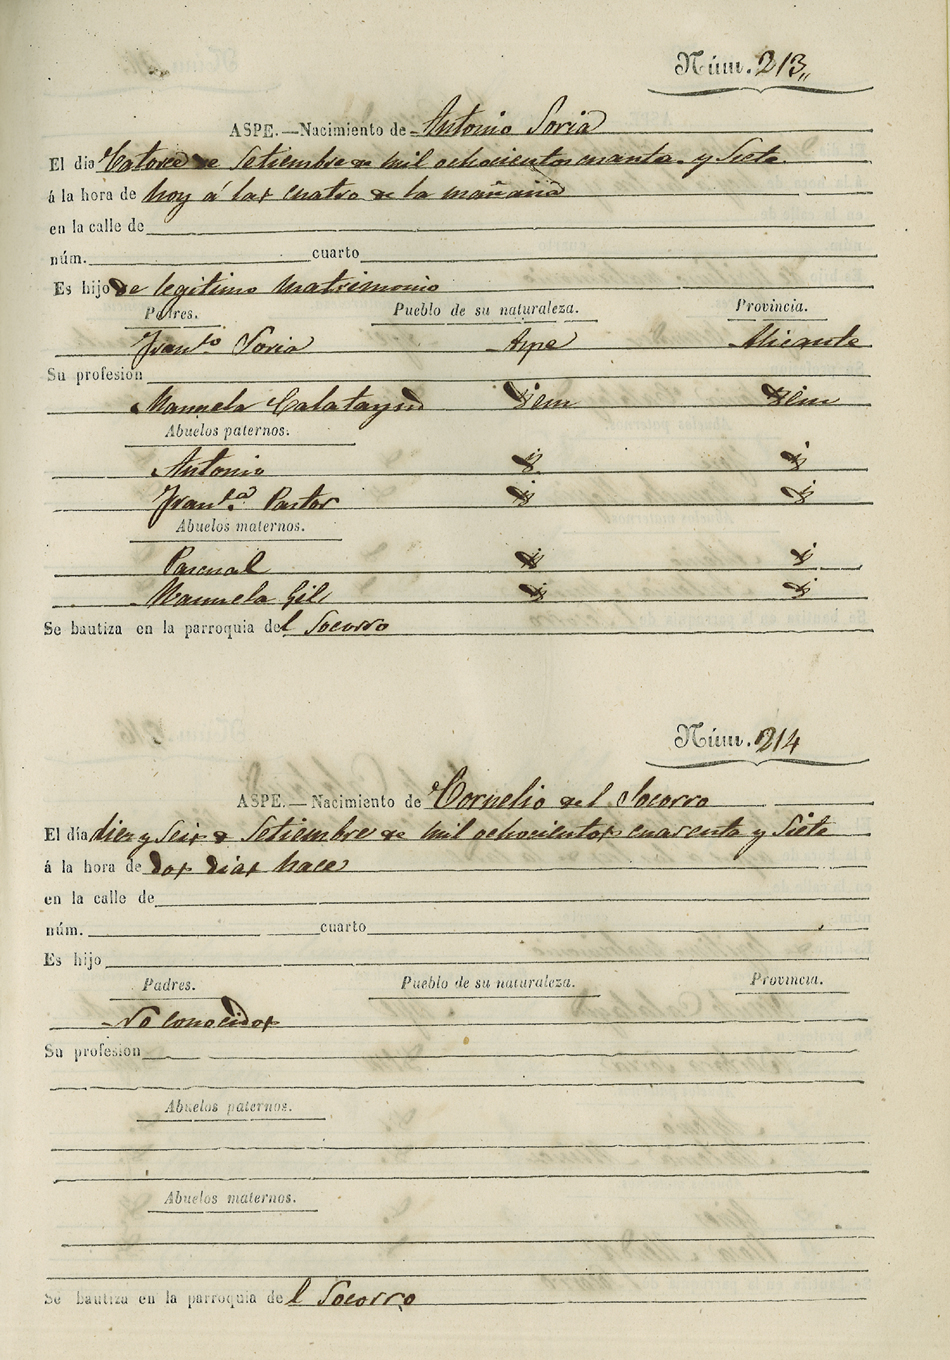 Núm. 213,,
ASPE.—Nacimiento de Antonio Soria
El dia Catorce de Setiembre de mil ochocientos cuarenta y Siete
á la hora de hoy á las cuatro de la mañana
en la calle de
núm. cuarto
Es hijo de legitimo matrimonio
Padres. Pueblo de su naturaleza. Provincia.
Franco Soria Aspe Alicante
Su profesion
Manuela Calatayud Idem Idem
Abuelos paternos.
Antonio
Franca Pastor
Abuelos maternos.
Pascual
Manuela Gil
Se bautiza en la parroquia del Socorro
Núm. 214
ASPE.—Nacimiento de Cornelio del Socorro
El día diez y Seis de Setiembre de mil ochocientos cuarenta y Siete
á la hora de dos dias hace
en la calle de
núm. cuarto
Es hijo
Padres. Pueblo de su naturaleza. Provincia.
No conocidos
Su profesion
Abuelos paternos.
Abuelos maternos.
Se bautiza en la parroquia del Socorro